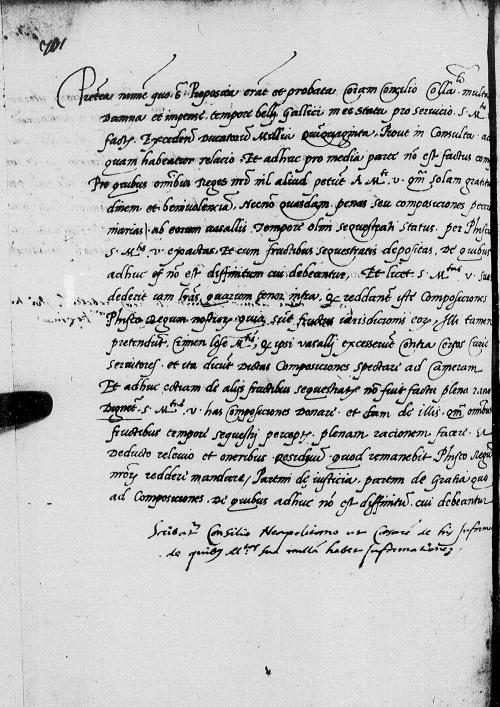 701
Preterea nomine quo s. Proposita erat et probata Coram Concilio Colla. multa
Damna et impense tempore belli Gallici in eo statu pro servicio. s. M.
factis. Excedenti Ducatorum Millia Quinquaginta. Prout in Consulta. ad
quam habeatur relacio. Et adhuc pro media parte nō est factus comp
Pro quibus omnibus Reges nro nil aliud petūt A Mte. v. qm solam gratitu
dinem et benivolenciam. Necnō quasdam penas seu composiciones pecu
niarias ab eorum vasallis Tempore olim sequestrati Status. per Phiscū
s. Mtis v. exactas. Et cum fructibus sequestratis depositas. De quibus
adhuc nō est diffinitum cui debeantur. Et licet s. Mtas v. sua
dederit iam lrās, quarum tenor infra, reddant iste Composiciones
Phisco Regum nostror. quia sūt fructus iurisdictionis eor. Illi tamen
pretendūt, Crimen lese Mtis, ipsi vasalli excesserūt contra Certos Curie
servitores. et ita dicūt Dictas Composiciones spectare ad Cameram
Et adhuc etiam de alijs fructibus sequestratis nō fuit facta plena racio
Dignet. s. Mtas. v. has composiciones Donare. et tam de illis. qm omnibus
fructibus tempore sequestri perceptis. plenam racionem facere. Et
Deducto relevio et oneribus Residuū quod remanebit Phisco Regū
nrōr, reddere mandare, Partim de iusticia. partim de Gratia quo
ad Composiciones. De quibus adhuc nō est diffinitū. cui debeantur
Scribat Consilio Neapolitano ut Cesaree de his informa
de quibus Mtas sua nullā habet informationē